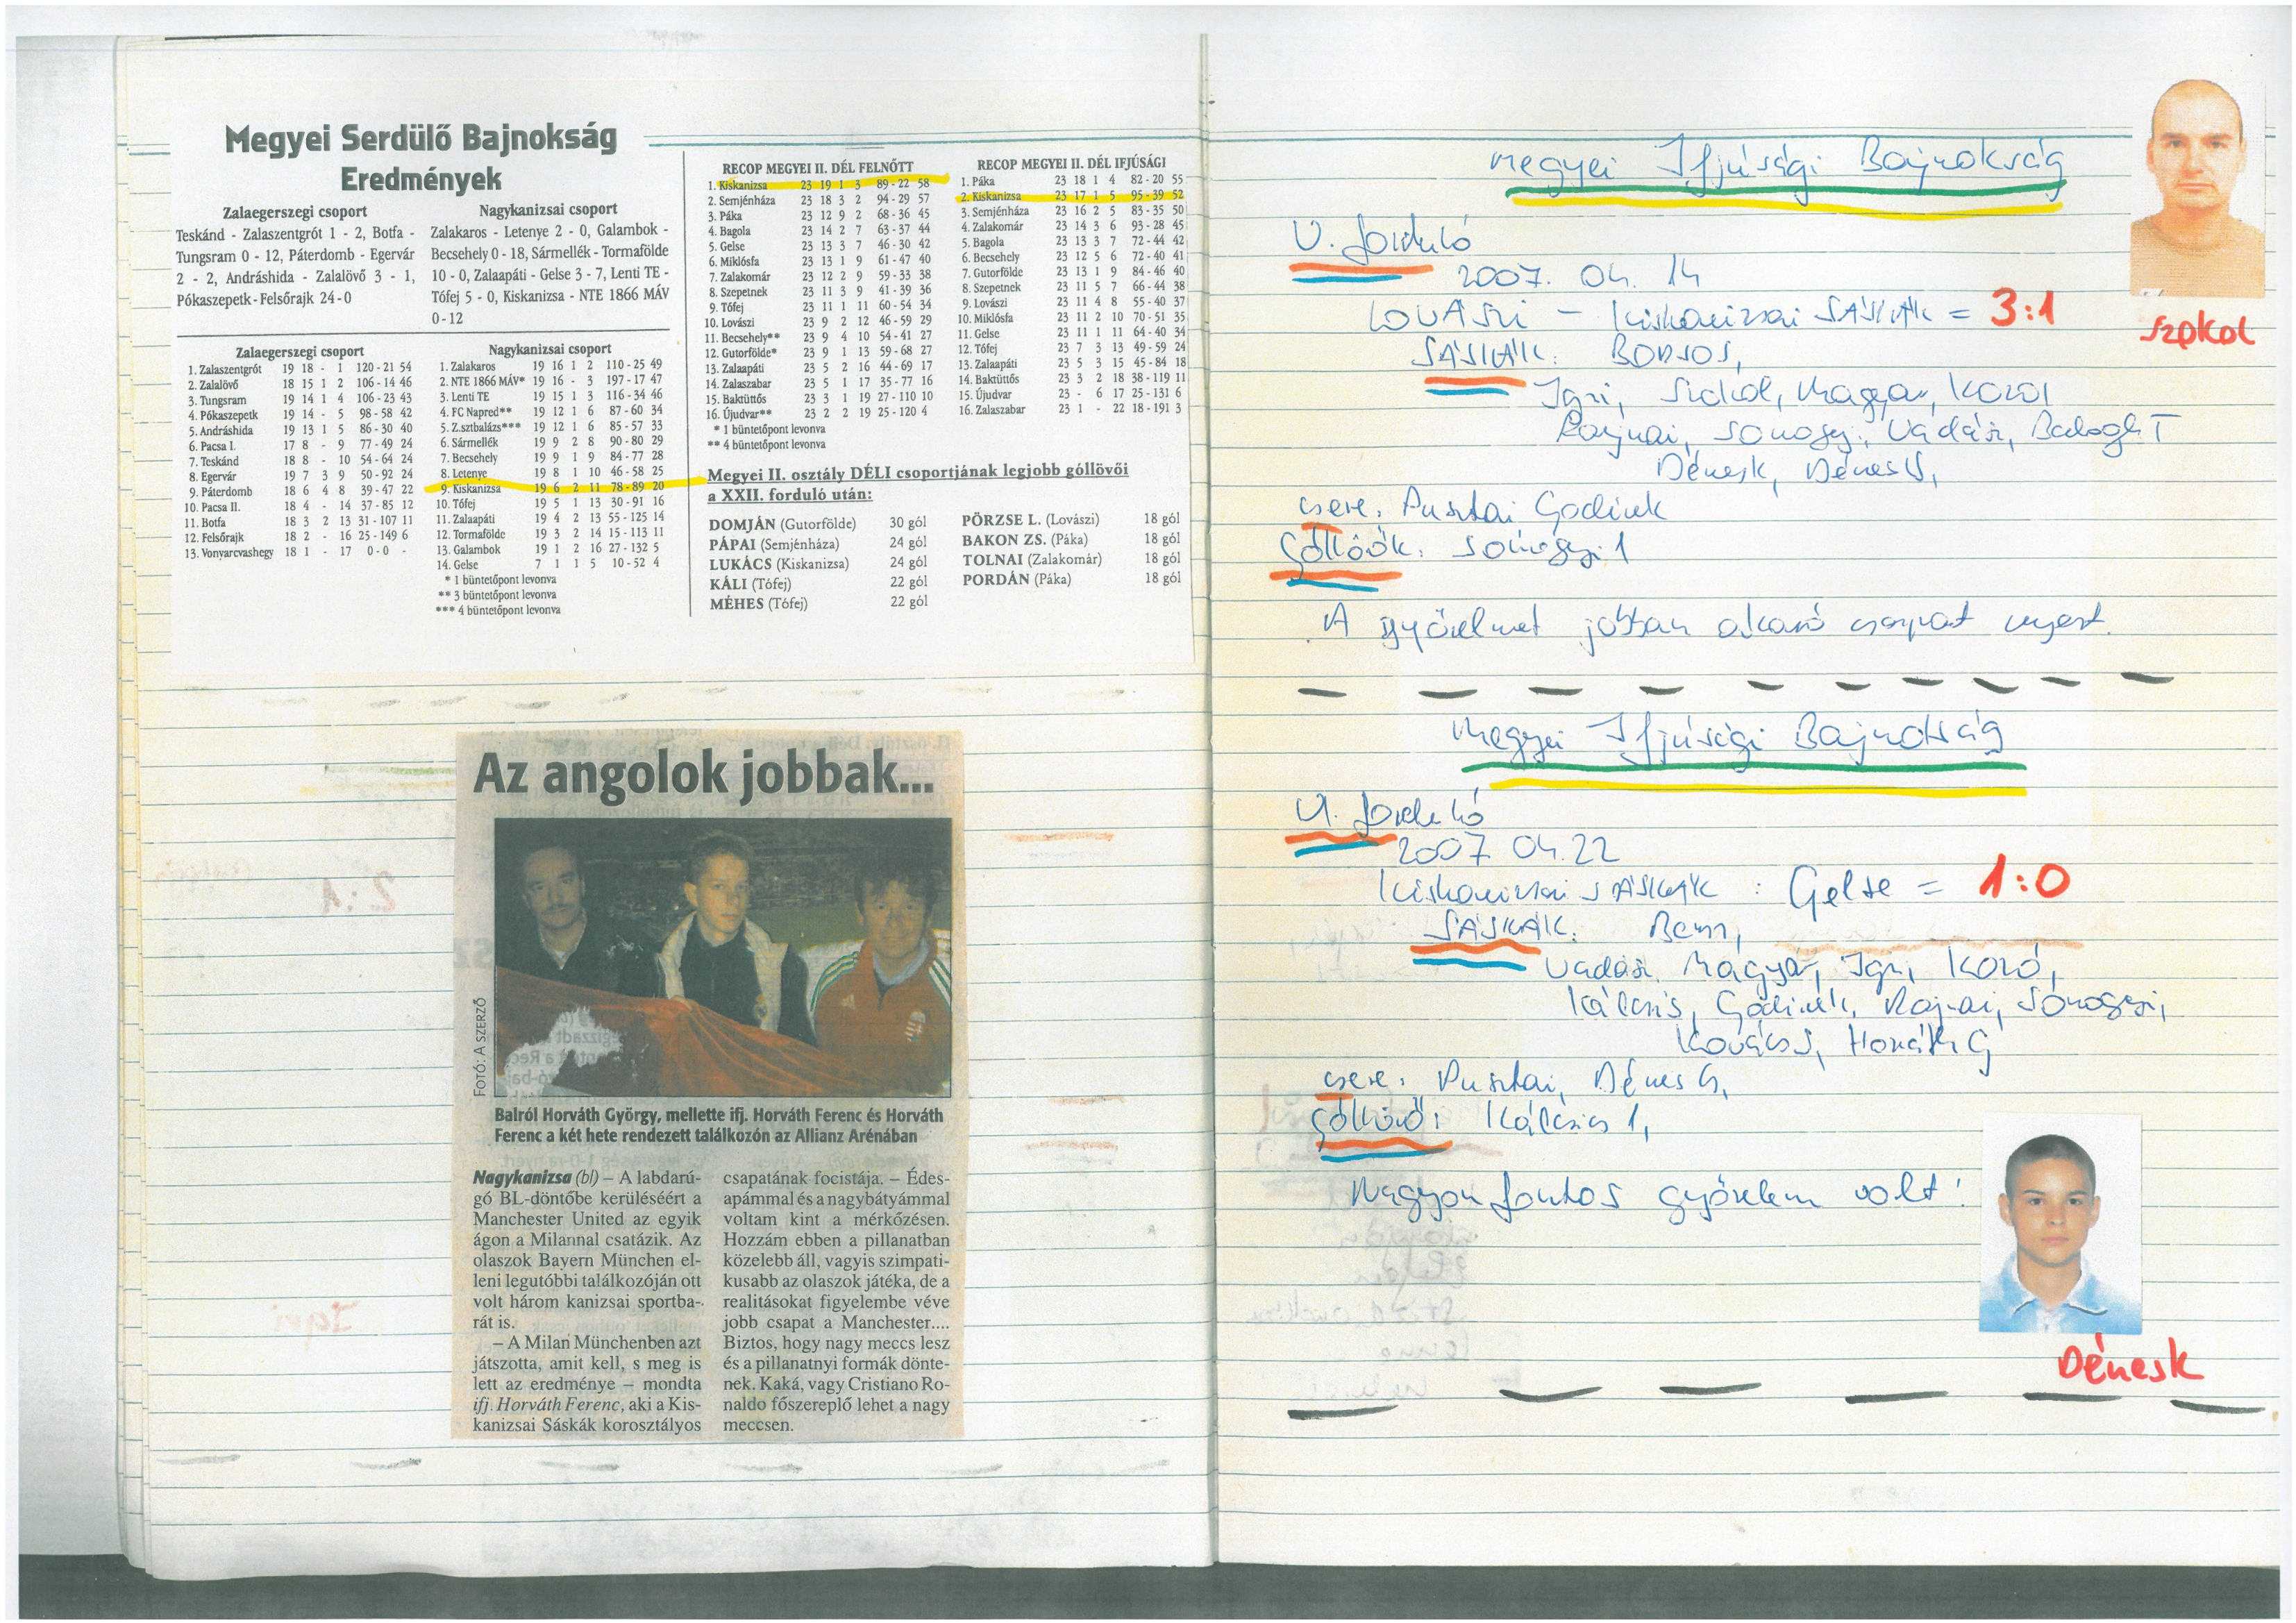 Megyei Serdülő Bajnokság
Eredmények
Zalaegerszegi csoport
Teskánd - Zalaszentgrót 1 - 2, Botfa -
Tungsram 0 - 12, Páterdomb - Egervár
2 - 2, Andráshida - Zalalövő 3 - 1,
Pókaszepetk - Felsőrajk 24-0
Nagykanizsai csoport
Zalakaros - Letenye 2 - 0, Galambok -
Becsehely 0 - 18, Sármellék - Tormafölde
10 - 0, Zalaapáti - Gelse 3 - 7, Lenti TE -
Tófej 5 - 0, Kiskanizsa - NTE 1866 MÁV
0-12
Zalaegerszegi csoport
1. Zalaszentgrót 19 18 - 1 120 - 21 54
2. Zalalövő 18 15 1 2 106 - 14 46
3. Tungsram 19 14 1 4 106 - 23 43
4. Pókaszepetk 19 14 - 5 98 - 58 42
5. Andráshida 19 13 1 5 86 - 30 40
6. Pacsa I. 17 8 - 9 77 - 49 24
7. Teskánd 18 8 - 10 54 - 64 24
8. Egervár 19 7 3 9 50 - 92 24
9. Páterdomb 18 6 4 8 39 - 47 22
10. Pacsa II. 18 4 - 14 37 - 85 12
11. Botfa 18 3 2 13 31 - 107 11
12. Felsőrajk 18 2 - 16 25 - 149 6
13. Vonyarcvashegy 18 1 - 17 0 - 0 -
Nagykanizsai csoport
1. Zalakaros 19 16 1 2 110 - 25 49
2. NTE 1866 MÁV* 19 16 - 3 197 - 17 47
3. Lenti TE 19 15 1 3 116 - 34 46
4. FC Napred** 19 12 1 6 87 - 60 34
5. Z.sztbalázs*** 19 12 1 6 85 - 57 33
6. Sármellék 19 9 2 8 90 - 80 29
7. Becsehely 19 9 1 9 84 - 77 28
8. Letenye 19 8 1 10 46 - 58 25
9. Kiskanizsa 19 6 2 11 78 - 89 20
10. Tófej 19 5 1 13 30 - 91 16
11. Zalaapáti 19 4 2 13 55 - 125 14
12. Tormafölde 19 3 2 14 15 - 113 11
13. Galambok 19 1 2 16 27 - 132 5
14. Gelse 7 1 1 5 10 - 52 4
* 1 büntetőpont levonva
** 3 büntetőpont levonva
*** 4 büntetőpont levonva
RECOP MEGYEI II. DÉL FELNŐTT
1. Kiskanizsa 23 19 1 3 89 - 22 58
2. Semjénháza 23 18 3 2 94 - 29 57
3. Páka 23 12 9 2 68 - 36 45
4. Bagola 23 14 2 7 63 - 37 44
5. Gelse 23 13 3 7 46 - 30 42
6. Miklósfa 23 13 1 9 61 - 47 40
7. Zalakomár 23 12 2 9 59 - 33 38
8. Szepetnek 23 11 3 9 41 - 39 36
9. Tófej 23 11 1 11 60 - 54 34
10. Lovászi 23 9 2 12 46 - 59 29
11. Becsehely** 23 9 4 10 54 - 41 27
12. Gutorfölde* 23 9 1 13 59 - 68 27
13. Zalaapáti 23 5 2 16 44 - 69 17
14. Zalaszabar 23 5 1 17 35 - 77 16
15. Baktüttös 23 3 1 19 27 - 110 10
16. Újudvar** 23 2 2 19 25 - 120 4
* 1 büntetőpont levonva
** 4 büntetőpont levonva
RECOP MEGYEI II. DÉL IFJÚSÁGI
1. Páka 23 18 1 4 82 - 20 55
2. Kiskanizsa 23 17 1 5 95 - 39 52
3. Semjénháza 23 16 2 5 83 - 35 50
4. Zalakomár 23 14 3 6 93 - 28 45
5. Bagola 23 13 3 7 72 - 44 42
6. Becsehely 23 12 5 6 72 - 40 41
7. Gutorfölde 23 13 1 9 84 - 46 40
8. Szepetnek 23 11 5 7 66 - 44 38
9. Lovászi 23 11 4 8 55 - 40 37
10. Miklósfa 23 11 2 10 70 - 51 35
11. Gelse 23 11 1 11 64 - 40 34
12. Tófej 23 7 3 13 49 - 59 24
13. Zalaapáti 23 5 3 15 45 - 84 18
14. Baktüttős 23 3 2 18 38 - 119 11
15. Újudvar 23 - 6 17 25 - 131 6
16. Zalaszabar 23 1 - 22 18 - 191 3
Megyei II. osztály DÉLI csoportjának legjobb góllövői
a XXII. forduló után:
DOMJÁN (Gutorfölde) 30 gól
PÁPAI (Semjénháza) 24 gól
LUKÁCS (Kiskanizsa) 24 gól
KÁLI (Tófej) 22 gól
MÉHES (Tófej) 22 gól
PÖRZSE L. (Lovászi) 18 gól
BAKON ZS. (Páka) 18 gól
TOLNAI (Zalakomár) 18 gól
PORDÁN (Páka) 18 gól
Az angolok jobbak...
FOTÓ: A SZERZŐ
Balról Horváth György, mellette ifj. Horváth Ferenc és Horváth
Ferenc a két hete rendezett találkozón az Allianz Arénában
Nagykanizsa (bl) – A labdarú-
gó BL-döntőbe kerüléséért a
Manchester United az egyik
ágon a Milannal csatázik. Az
olaszok Bayern München el-
leni legutóbbi találkozóján ott
volt három kanizsai sportba-
rát is.
– A Milan Münchenben azt
játszotta, amit kell, s meg is
lett az eredménye – mondta
ifj. Horváth Ferenc, aki a Kis-
kanizsai Sáskák korosztályos
csapatának focistája. – Édes-
apámmal és a nagybátyámmal
voltam kint a mérkőzésen.
Hozzám ebben a pillanatban
közelebb áll, vagyis szimpati-
kusabb az olaszok játéka, de a
realitásokat figyelembe véve
jobb csapat a Manchester....
Biztos, hogy nagy meccs lesz
és a pillanatnyi formák dönte-
nek. Kaká, vagy Cristiano Ro-
naldo főszereplő lehet a nagy
meccsen.
Megyei Ifjúsági Bajnokság
V. forduló
2007. 04. 14
LOVÁSZI – Kiskanizsai SÁSKÁK = 3:1
SÁSKÁK:
Igri, Szokol, Magyar, Kozó
Rajnai, Somogyi, Vadász, Balogh T
Dénesk, Dénes G,
csere: Pusztai, Godinek
Góllövők: Somogyi 1
A győzelmet jobban akaró csapat nyert.
szokol
Megyei Ifjúsági Bajnokság
VI. forduló
2007. 04. 22
Kiskanizsai SÁSKÁK : Gelse = 1:0
SÁSKÁK: Bem,
Vadász, Magyar, Igri, Kozó,
Kálcsis, Godinek, Rajnai, Somogyi,
Kovács J, Horváth G
csere: Pusztai, Dénes G,
Góllövő: Kálcsics 1,
Nagyon fontos győzelem volt!
Dénesk